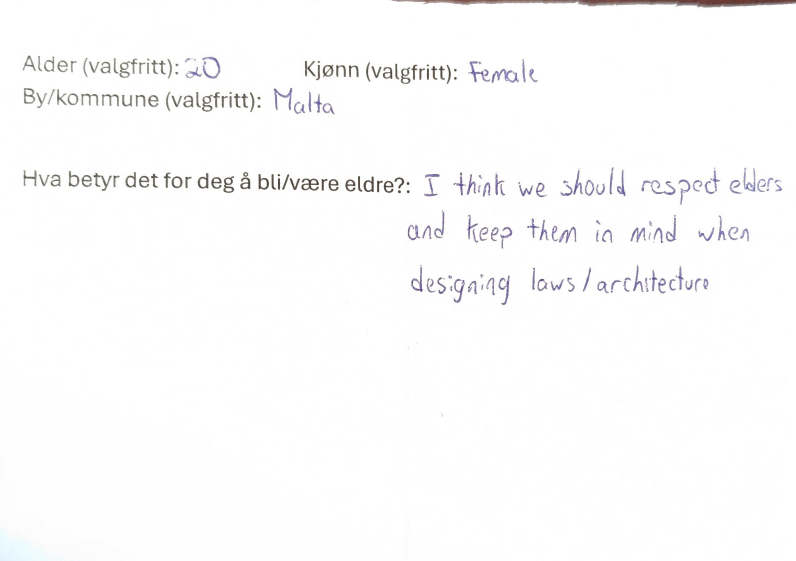 Alder (valgfritt): 20 Kjønn (valgfritt): Female
By/kommune (valgfritt): Malta
Hva betyr det for deg å bli/være eldre?: I think we should respect elders
and keep them in mind when
designing laws/architecture